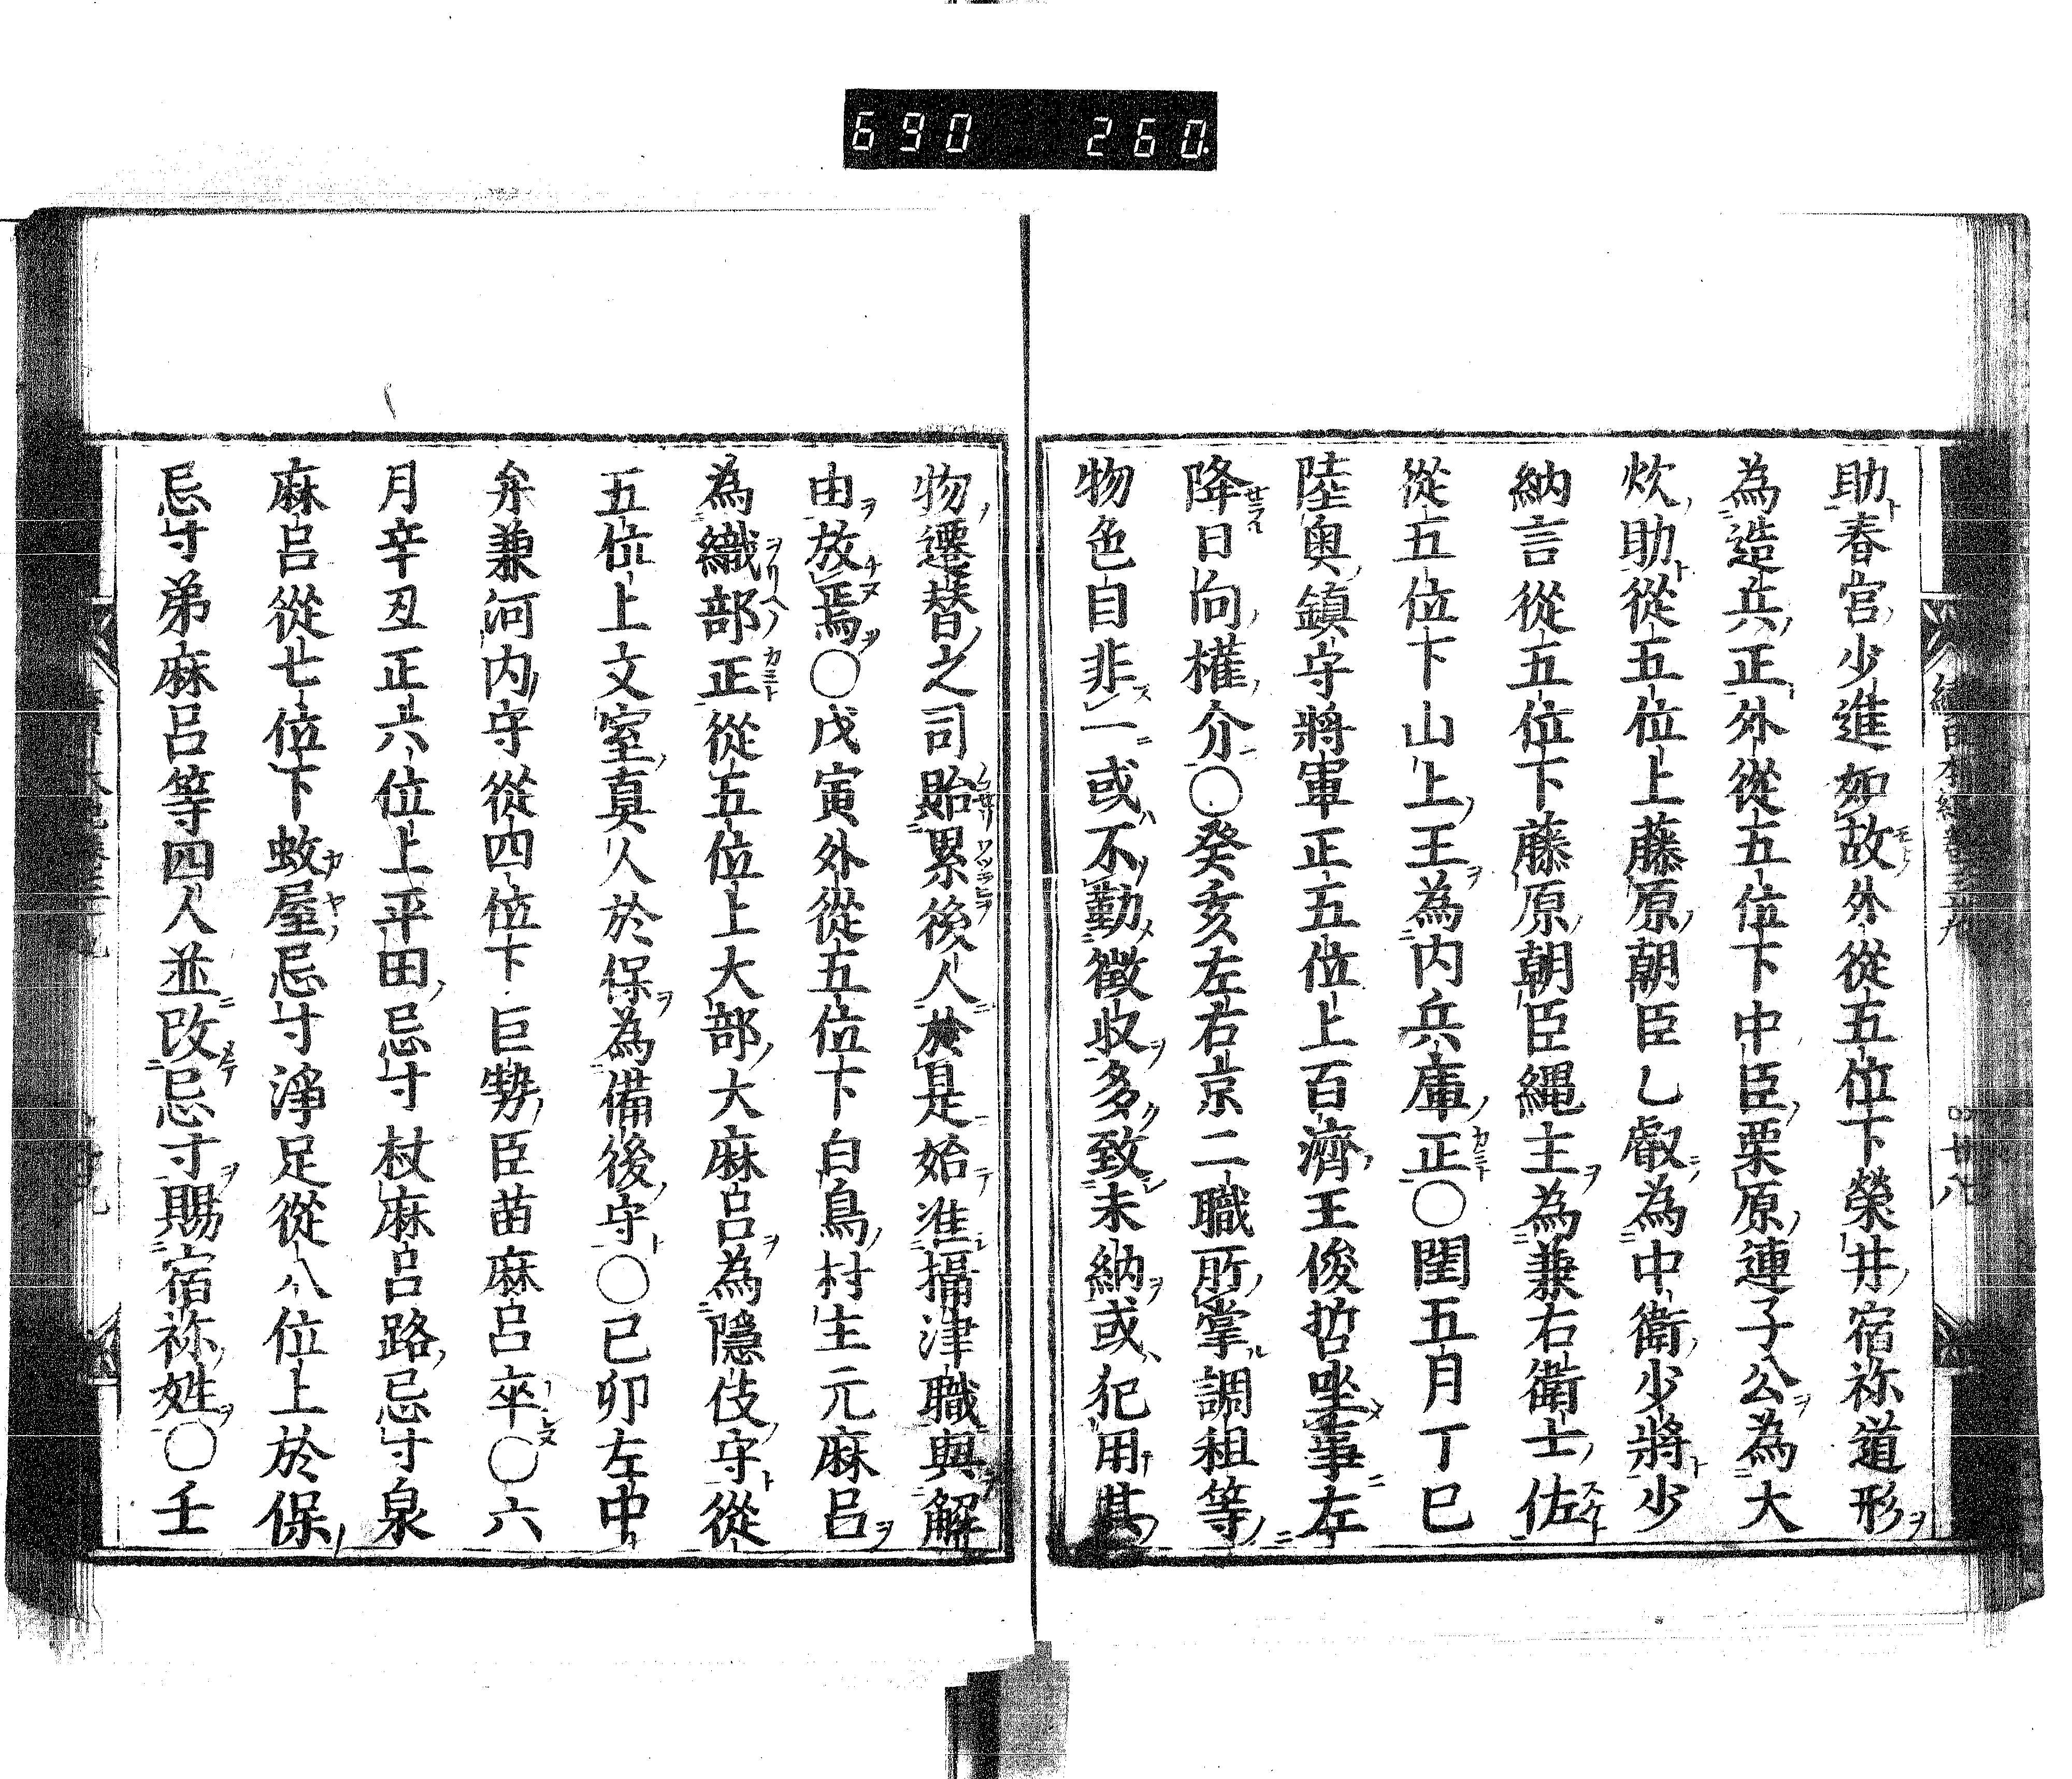 690 260.
助春宮少進如故外從五位下榮井宿祢道形
為造兵正外從五位下中臣栗原連子公為大
炊助從五位上藤原朝臣乙叡為中衛少將少
納言從五位下藤原朝臣縄主為兼右衛士佐
從五位下山上王為内兵庫正○閏五月丁巳
陸奥鎮守將軍正五位上百濟王俊哲坐事左
降日向權介○癸亥左右京二職所掌調租等
物色自非一或不勤徵收多致未納或犯用其
物遷替之司貽累後人於是始准攝津職與解
由放焉○戊寅外從五位下白鳥村主元麻呂
為織部正從五位上大部大麻呂為隱伎守從
五位上文室真人於保為備後守○己卯左中
弁兼河内守從四位下巨勢臣苗麻呂卒○六
月辛丑正六位上平田忌寸杖麻呂路忌寸泉
麻呂從七位下蚊屋忌寸淨足從八位上於保
忌寸弟麻呂等四人並改忌寸賜宿祢姓○壬